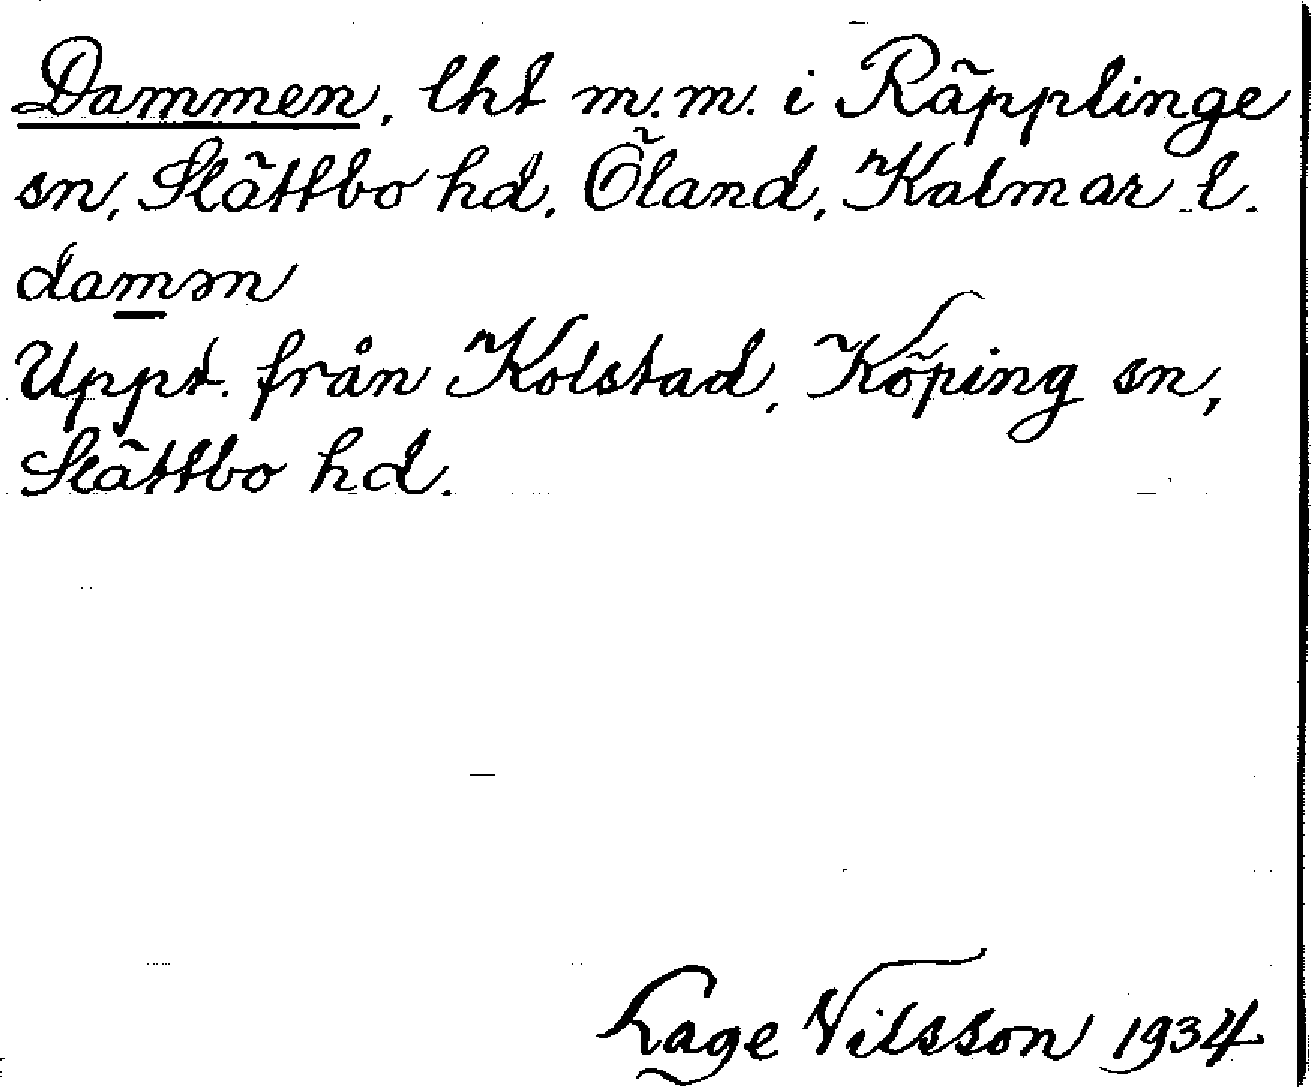 Dammen, lht m.m. i Räpplinge
sn, Slättbo hd, Öland, Kalmar l.
damən
Uppt. från Kolstad, Köping sn,
Slättbo hd.
Lage Nilsson 1934